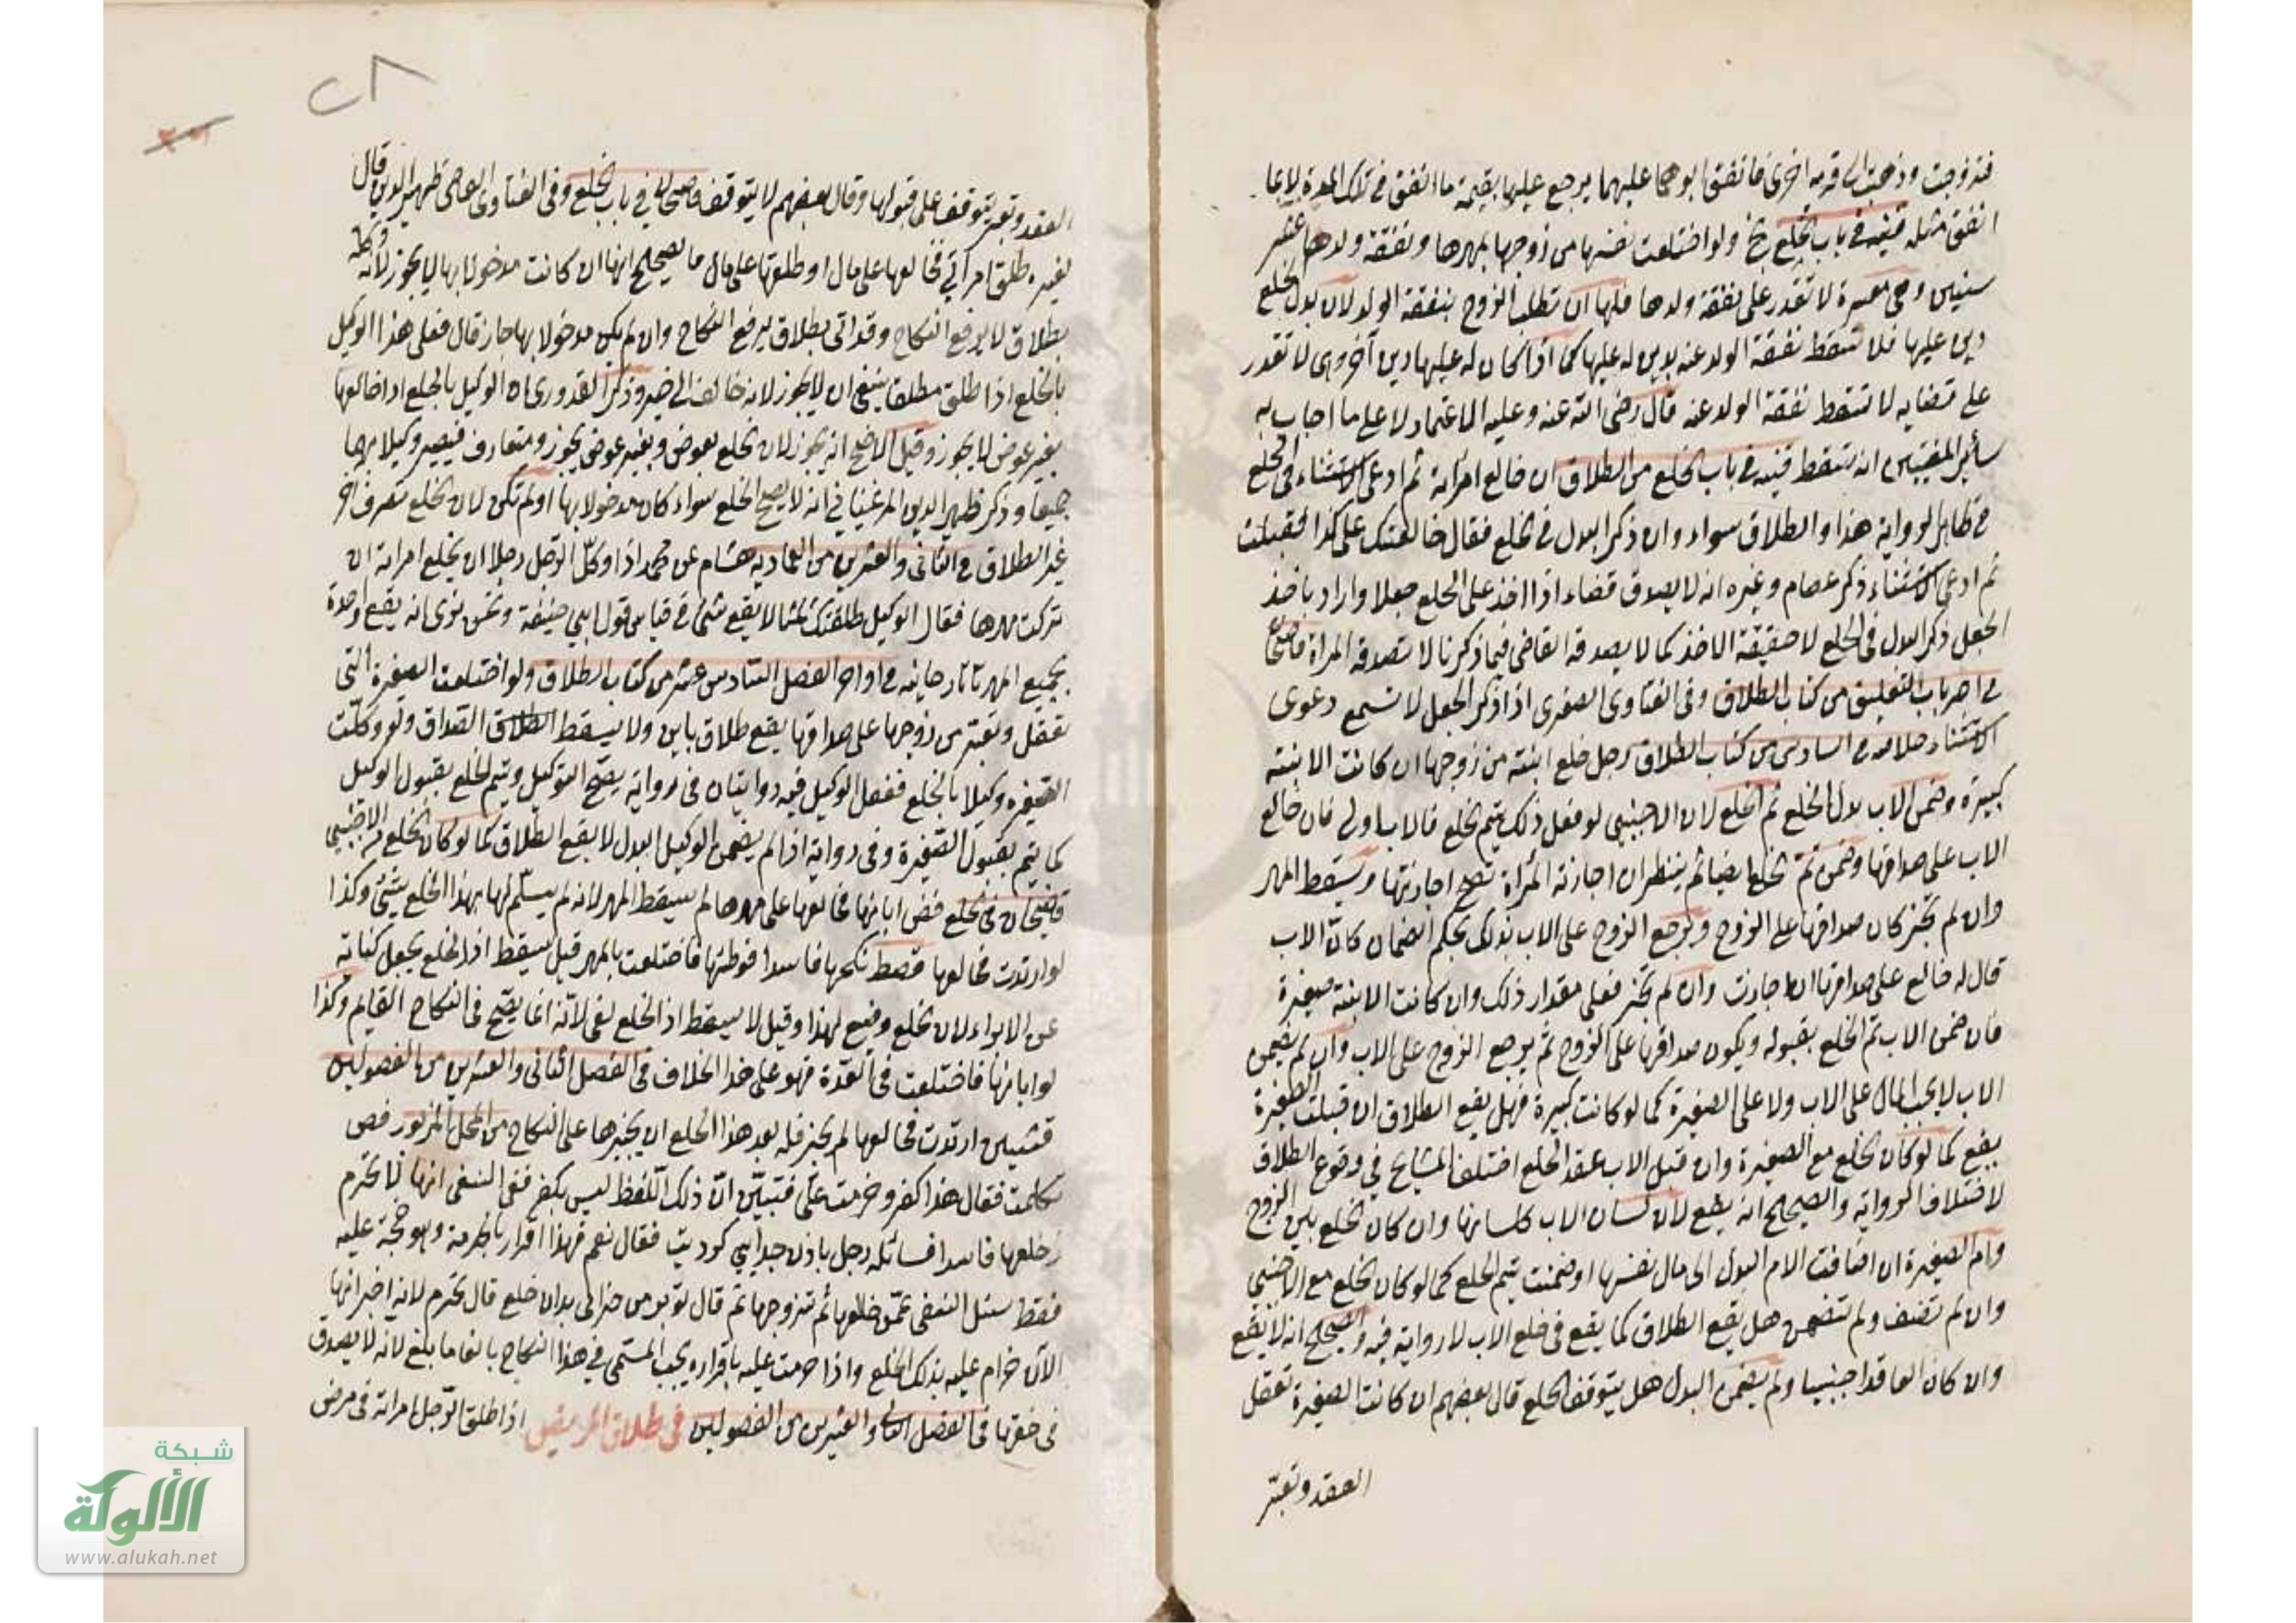 فتزوجت وذهبت الى قرية اخرى فما نفق ابوهما عليهما يرجع عليها بقيمة ما انفق في تلك المدة لا بما
انفق مثله قنيه في باب الخلع نخ ولو اختلعت نفسها من زوجها بمهرها ونفقة ولدها عشر
سنين وهي معسرة لا تقدر على نفقة ولدها فلها ان تطلب الزوج بنفقة الولد لان بدل الخلع
دين عليها فلا تسقط نفقة الولد عنه بدين له عليها كما اذا كان له عليها دين آخر وهي لا تقدر
على قضايه لا تسقط نفقة الولد عنه قال رضى الله عنه وعليه الاعتماد لا على ما اجاب به
سائر المفتيين انه تسقط قنيه في باب الخلع من الطلاق ان خالع امرأته ثم ادعى الاستثناء في الخلع
في ظاهر الرواية هذا والطلاق سواء وان ذكر البدل في الخلع فقال خالعتك على كذا فقبلت
ثم ادعى الاستثناء ذكر عصام وغيره انه لا يصدق قضاء اذا اخذ على الخلع جعلا واراد باخذ
الجعل ذكر البدل في الخلع لا حقيقة الاخذ كما لا يصدقه القاضي فيما ذكرنا لا تصدقه المرأة قاضيخان
في اخر باب التعليق من كتاب الطلاق وفى الفتاوى الصغرى اذا ذكر الجعل لا تسمع دعوى
الاستثناء خلاصه في السادس من كتاب الطلاق رجل خلع ابنته من زوجها ان كانت الابنة
كبيرة وضمن الاب بدل الخلع تم الخلع لان الاجنبي لو فعل ذلك يتم الخلع فالاب اولى فان خالع
الاب على صداقها وضمن تم الخلع ايضا ثم ينظر ان اجازته المرأة تصح اجازتها ويسقط المهر
وان لم تجز كان صداقها على الزوج ويرجع الزوج على الاب بذلك بحكم الضمان كان الاب
قال له خالع على صداقها ان اجازت وان لم تجز فعلى مقدار ذلك وان كانت الابنة صغيرة
فان ضمن الاب تم الخلع بقبوله ويكون صداقها على الزوج ثم يرجع الزوج على الاب وان لم يضمن
الاب لا يجب المال على الاب ولا على الصغيرة كما لو كانت كبيرة فهل يقع الطلاق ان قبلت الصغيرة
يقع كما لو كان الخلع مع الصغيرة وان قبل الاب عقد الخلع اختلف المشايخ في وقوع الطلاق
لاختلاف الرواية والصحيح انه يقع لان لسان الاب كلسانها وان كان الخلع بين الزوج
وام الصغيرة ان اضافت الام البدل الى مال نفسها او ضمنت يتم الخلع كما لو كان الخلع مع الاجنبي
وان لم تضف ولم تضمن هل يقع الطلاق كما يقع في خلع الاب لا رواية فيه والصحيح انه لا يقع
وان كان العاقد اجنبيا ولم يضمن البدل هل يتوقف الخلع قال بعضهم ان كانت الصغيرة تعقل
العقد وتعبّر
٢٨
العقد وتعبر يتوقف على قبولها وقال بعضهم لا يتوقف قاضيخان في باب الخلع وفى الفتاوى القاضى ظهير الدين قال
لغيره طلق امرأتي فخالعها على مال او طلقها على مال ما الصحيح انها ان كانت مدخولا بها لا يجوز لانه وكله
بطلاق لا يرفع النكاح وقد اتى بطلاق يرفع النكاح وان لم يكن مدخولا بها جاز قال فعلى هذا الوكيل
بالخلع اذا طلق مطلقا ينبغي ان لا يجوز لانه خالف الى خير وذكر القدورى ان الوكيل بالخلع اذا خالعها
بغير عوض لا يجوز وقيل الاصح انه يجوز لان الخلع بعوض وبغير عوض يجوز ومتعارف فيصير وكيلا بهما
جميعا وذكر ظهير الدين المرغيناني انه لا يصح الخلع سواء كان مدخولا بها او لم تكن لان الخلع تصرف آخر
غير الطلاق في الثانى والعشرين من العماديه هشام عن محمد اذا وكّل الرجل رجلا ان يخلع امرأته ان
تركت مهرها فقال الوكيل طلقتك ثلثا لا يقع شئ في قياس قول ابي حنيفة وعن نوى انه يقع واحدة
بجميع المهر تاتارخانيه في اواخر الفصل السادس عشر من كتاب الطلاق ولو اختلعت الصغيرة التى
تعقل وتعبّر من زوجها على صداقها يقع طلاق باين ولا يسقط الصداق ولو وكلت
الصغيرة وكيلا بالخلع ففعل الوكيل فيه روايتان فى رواية يصح التوكيل ويتم الخلع بقبول الوكيل
كما يتم بقبول الصغيرة وفى رواية اذا لم يضمن الوكيل البدل لا يقع الطلاق كما لو كان الخلع من الاجنبي
قاضيخان فى الخلع فض ابانها فخالعها على مهرها لم يسقط المهر لانه لم يسلم لها بهذا الخلع شئ وكذا
لو ارتدت فخالعها قصط نكحها فاسدا فوطئها فاختلعت بالمهر قيل يسقط اذ الخلع يجعل كناية
عن الابراء لان الخلع وضع لهذا وقيل لا يسقط اذ الخلع لغى لانه انما يصح في النكاح القايم وكذا
لو ابانها فاختلعت في العدة فهو على هذا الخلاف في الفصل الثانى والعشرين من الفصولين
قشيين ارتدت فخالعها لم يجز فله بعد هذا الخلع ان يجبرها على النكاح من المحل المزبور فص
تكلمت فقال هذا كفر وحرمت علىّ فتبيّن انّ ذلك اللفظ ليس بكفر فعن النسفى انها لا تحرم
خلعها فاسدا فسائله رجل فقال نعم فهذا اقرار بالحرمة وهو حجة عليه
فقط سئل النسفى عمّن خالعها ثم تزوجها ثم قال قال تحرم لانه اخبر انها
الآن حرام عليه بذلك الخلع واذا حرمت عليه باقراره يجب المسمى في هذا النكاح بالغا ما بلغ لانه لا يصدق
في حقها في الفصل الثانى والعشرين من الفصولين فى طلاق المريض اذا طلق الرجل امرأته فى مرض
شبكة
الألوكة
www.alukah.net